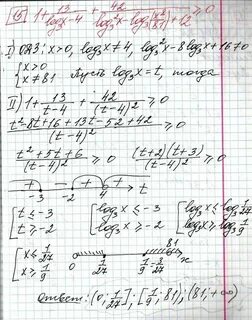 15) 1+ 13/(log₃x-4) + 42/(log₃²x-log₃(x⁸)+12) ≥ 0
I) ОДЗ: x>0, log₃x≠4, log₃²x-8log₃x+16≠0
{x>0
{x≠81 Пусть log₃x=t, тогда
II) 1+ 13/(t-4) + 42/(t-4)² ≥ 0
(t²-8t+16+13t-52+42)/(t-4)² ≥ 0
(t²+5t+6)/(t-4)² ≥ 0 (t+2)(t+3)/(t-4)² ≥ 0
+ - + +
-3 -2 4 t
[t≤-3 [log₃x≤-3 [log₃x≤log₃1/27
[t≥-2 [log₃x≥-2 [log₃x≥log₃1/9
[x≤1/27 81
[x≥1/9 0 1/27 1/9 x
Ответ: (0; 1/27]; [1/9; 81); (81; +∞)